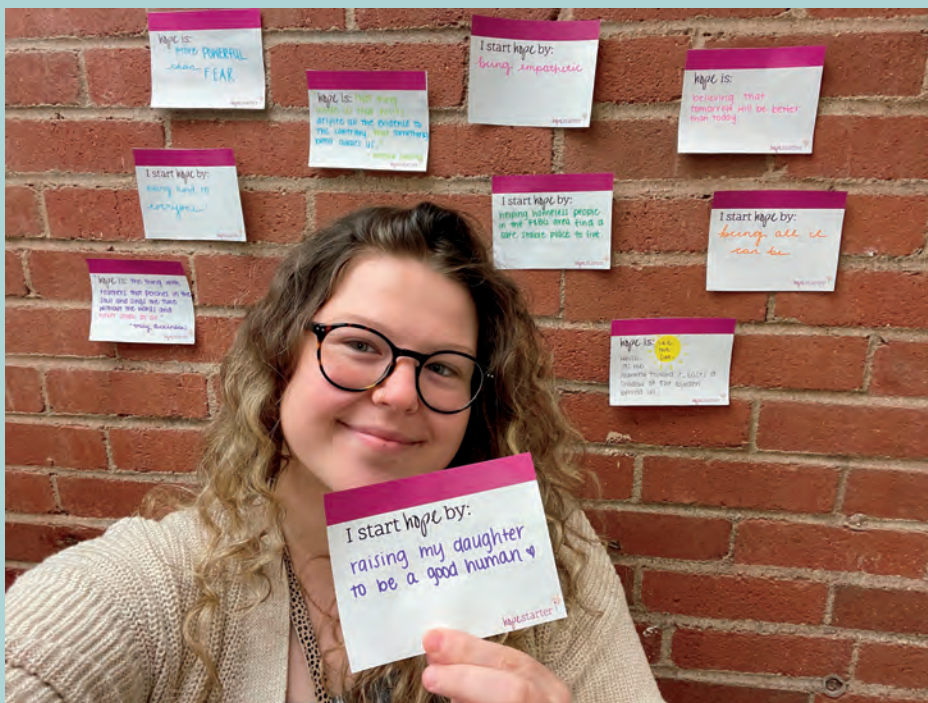 hope is:
more POWERFUL
than FEAR
hopestarter
hope is: that thing
despite all the evidence to
the contrary, that something
better awaits us."
hopestarter
I start hope by:
being empathetic
hopestarter
hope is:
believing that
tomorrow will be better
than today.
hopestarter
I start hope by:
being kind to
everyone
hopestarter
I start hope by:
helping homeless people
in the area find a
safe stable place to live
hopestarter
I start hope by:
being all it
can be
hopestarter
"hope is: the thing with
feathers that perches in the
soul and sings the tune
without the words and
never stops at all."
- Emily Dickinson
hopestarter
hope is: like
the
sun.
toward it, casts a
shadow of our burden
behind us.
hopestarter
I start hope by:
raising my daughter
to be a good human
hopestarter